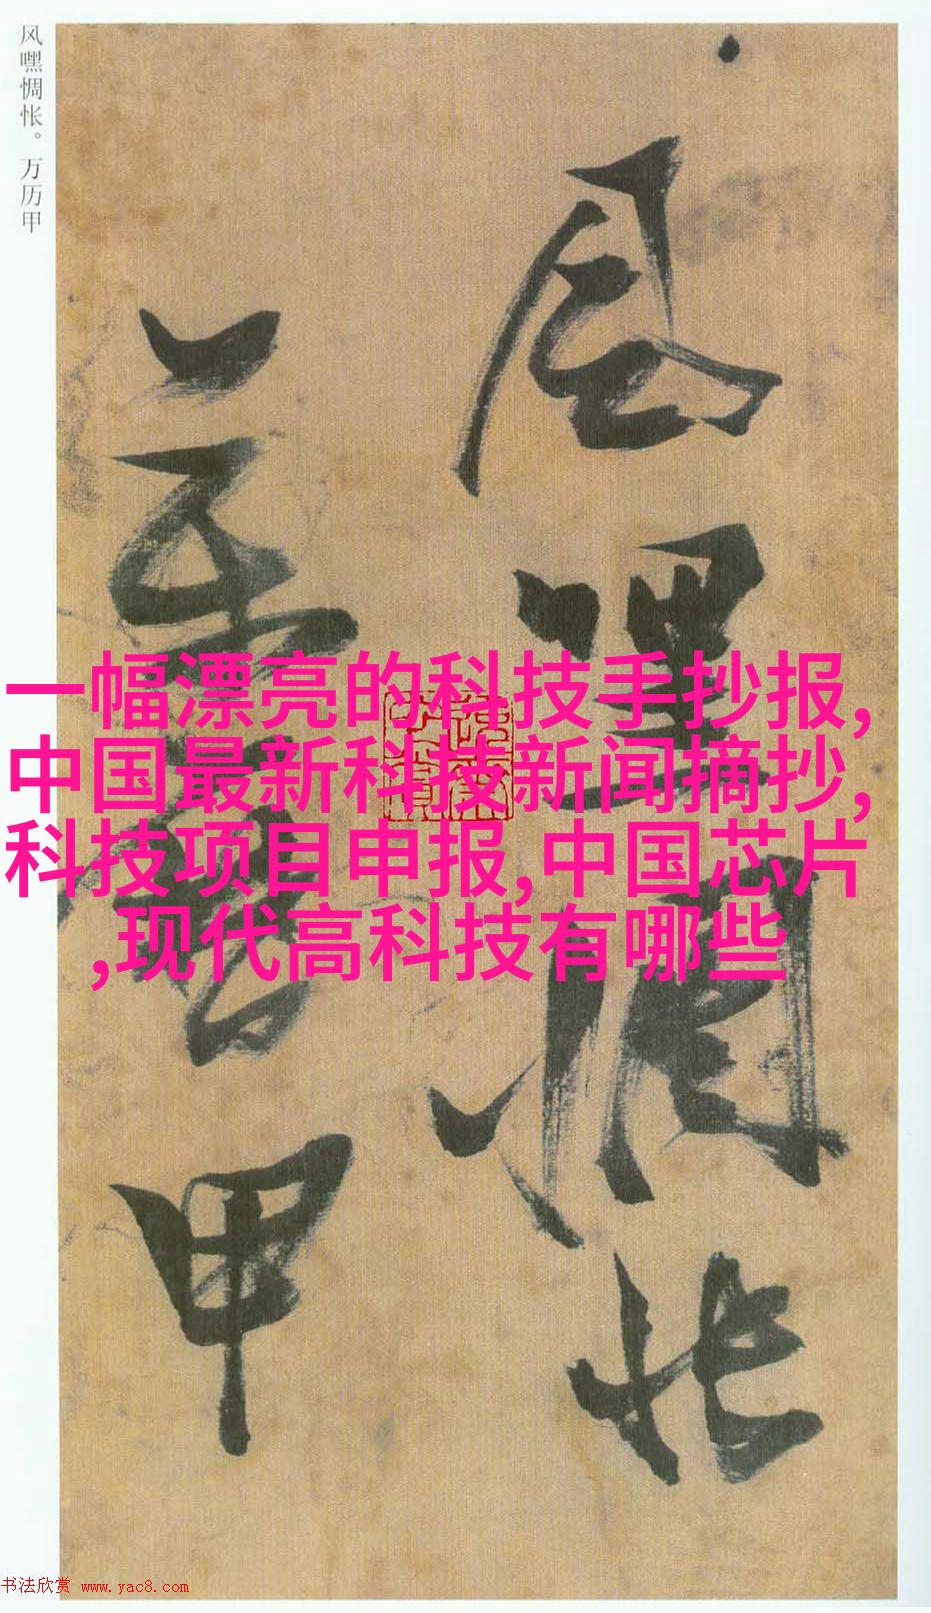 风嘿惆怅。万历甲
风嘿惆怅
万历甲
一幅漂亮的科技手抄报,
中国最新科技新闻摘抄,
科技项目申报,中国芯片
,现代高科技有哪些
书法欣赏 www.yac8.com